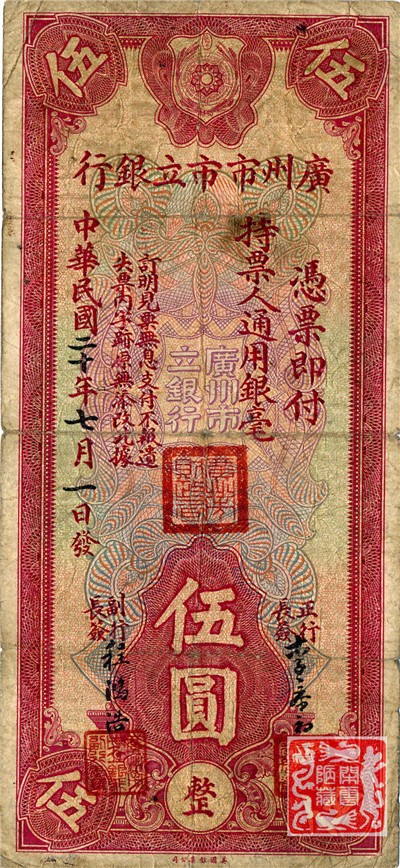 伍 伍
廣州市市立銀行
憑票即付
持票人通用銀毫
訂明見票無息支付不報遺
失票內字跡原無添改此據
中華民國二十年七月一日發
廣州市
立銀行
伍圓
整
正行長簽
副行長簽
程鴻
伍